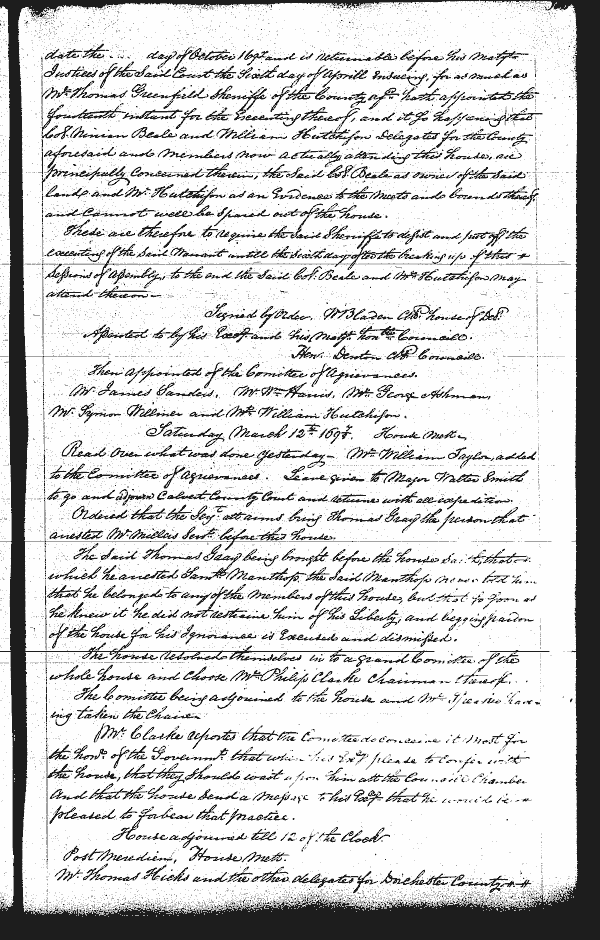 date the .... day of October 1697 and is returnable before his Majts
Justices of the Said Court the Sixth day of Aprill Ensueing, for as much as
Mr Thomas Greenfield Sheriffe of the County afd. hath appointed the
fourteenth instant for the Executing thereof, and it So happening that
Coll. Ninian Beale and William Hutchison Delegates for the County
aforesaid and Members now actually attending this house, are
principally Concerned therein, the Said Coll. Beale as owner of the Said
land and Mr. Hutchison as an Evidence to the Meets and bounds thereof,
and Cannot well be Spared out of the house.
These are therefore to require the Said Sheriffe to desist and put off the
executing of the Said Warrant untill the Sixth day after the breaking up of this
Sessions of Assembly, to the end the Said Coll. Beale and Mr. Hutchison may
attend thereon
Signed by Order. W Bladen Clk house of Del.
Assented to by his Excy. and his Majts. honble Councill.
Hen. Denton Clk Councill.
Then appointed of the Comittee of Agrievances.
Mr. James Sanders, Mr. Wm. Harris, Mr. George Ashman,
Mr. Symon Willmer and Mr. William Hutchison.
Saturday March 12th 1697/8. House Mett
Read Over what was done Yesterday Mr. William Taylor, added
to the Comittee of Agrievances. Leave given to Major Walter Smith
to go and adjourn Calvert County Court and returne with all expedition.
Ordered that the Serjt. att arms bring Thomas Gray the person that
arrested Mr. Millers Servt. before this house.
The Said Thomas Gray being brought before the house Saith, that
which he arrested Saml. Manthop, the Said Manthop never told him
that he belonged to any of the Members of this house, but that so soon as
he knew it he did not restraine him of his Liberty, and begging pardon
of the house for his Ignorance is Excused and dismissed.
The house resolved themselves in to a grand Comittee of the
whole house and Choose Mr. Philip Clarke Chairman thereof.
The Comittee being adjourned to the house and Mr. Speaker hav-
ing taken the Chaire
Mr. Clarke reportes that the Comittee do conceive it most for
the honr. of the Governmt. that when his Excy please to Confer with
the house, that they Should wait upon him att the Councill Chamber
And that the house Send a Message to his Excy that he would be
pleased to forbear that practice.
House adjourned till 12 of the Clock.
Post Meridiem, House Mett.
Mr. Thomas Hicks and the other delegates for Dorchester County